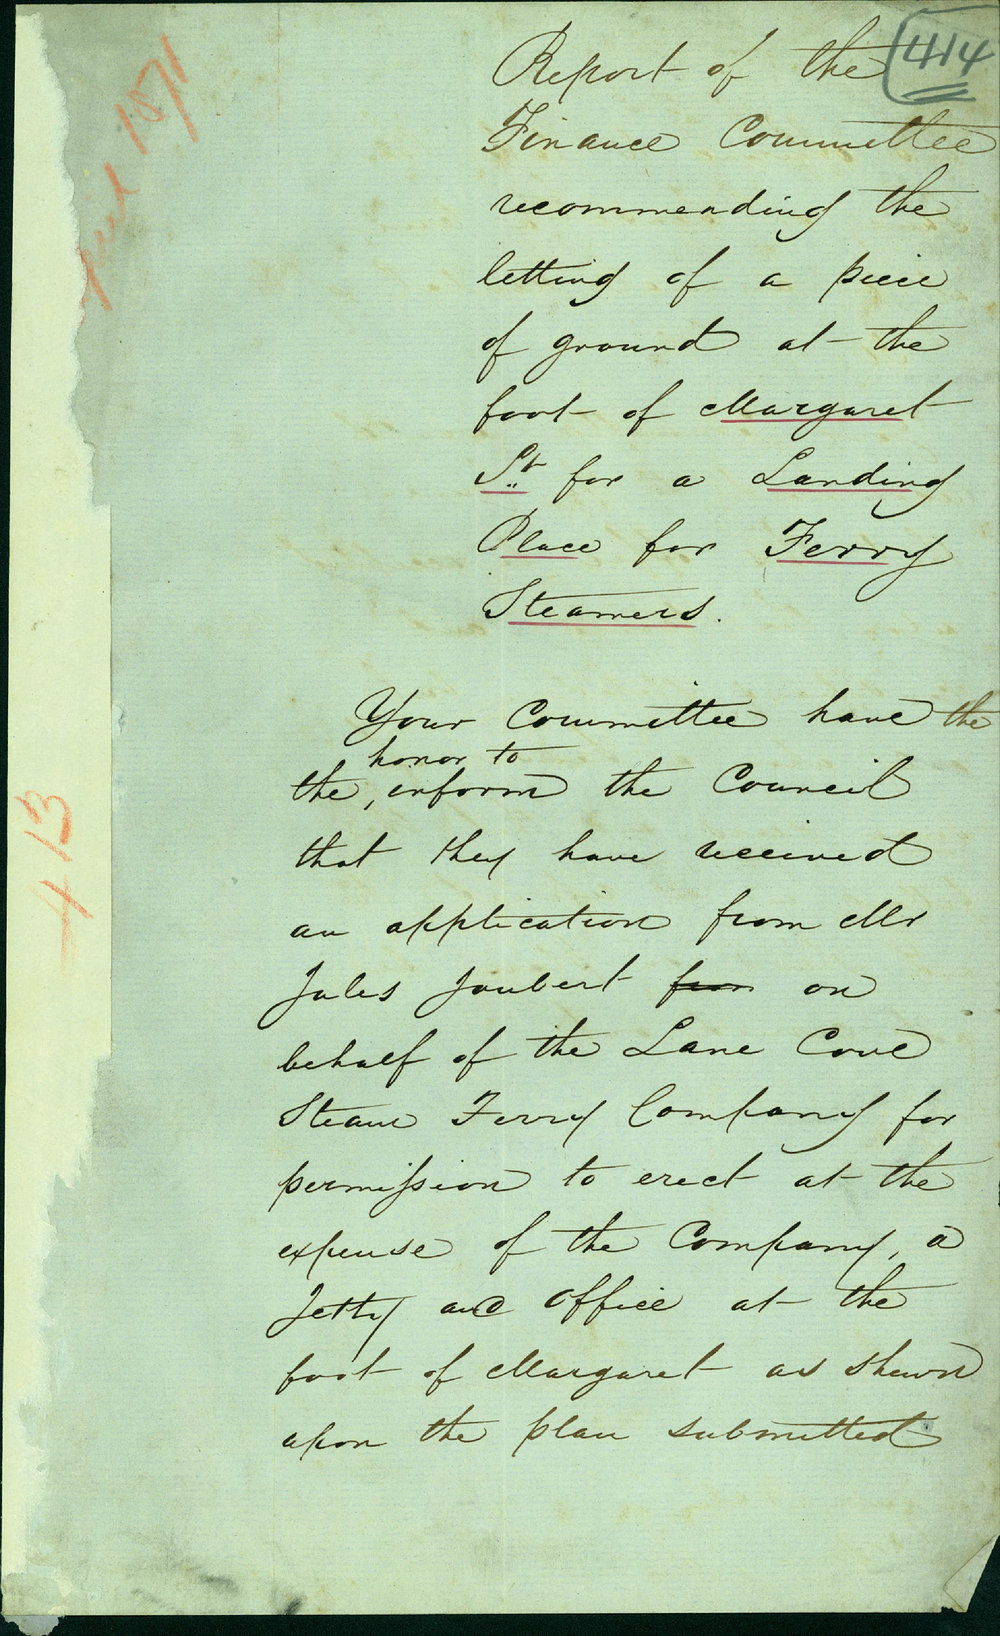 414
Report of the
Finance Committee
recommending the
letting of a piece
of ground at the
foot of Margaret
St. for a Landing
Place for Ferry
Steamers.
Your Committee have the
honor to
the, inform the Council
that they have received
an application from Mr
Jules Joubert from on
behalf of the Lane Cove
Steam Ferry Company for
permission to erect at the
expense of the Company, a
Jetty and Office at the
foot of Margaret as shewn
upon the plan submitted
1871
413